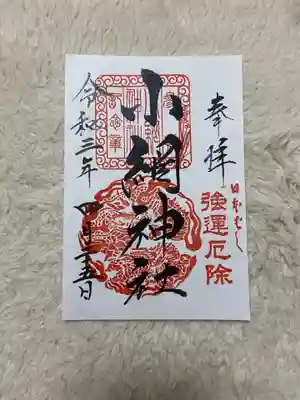 奉拝
日本ばし
強運厄除
小網神社
令和三年
四月二十五日